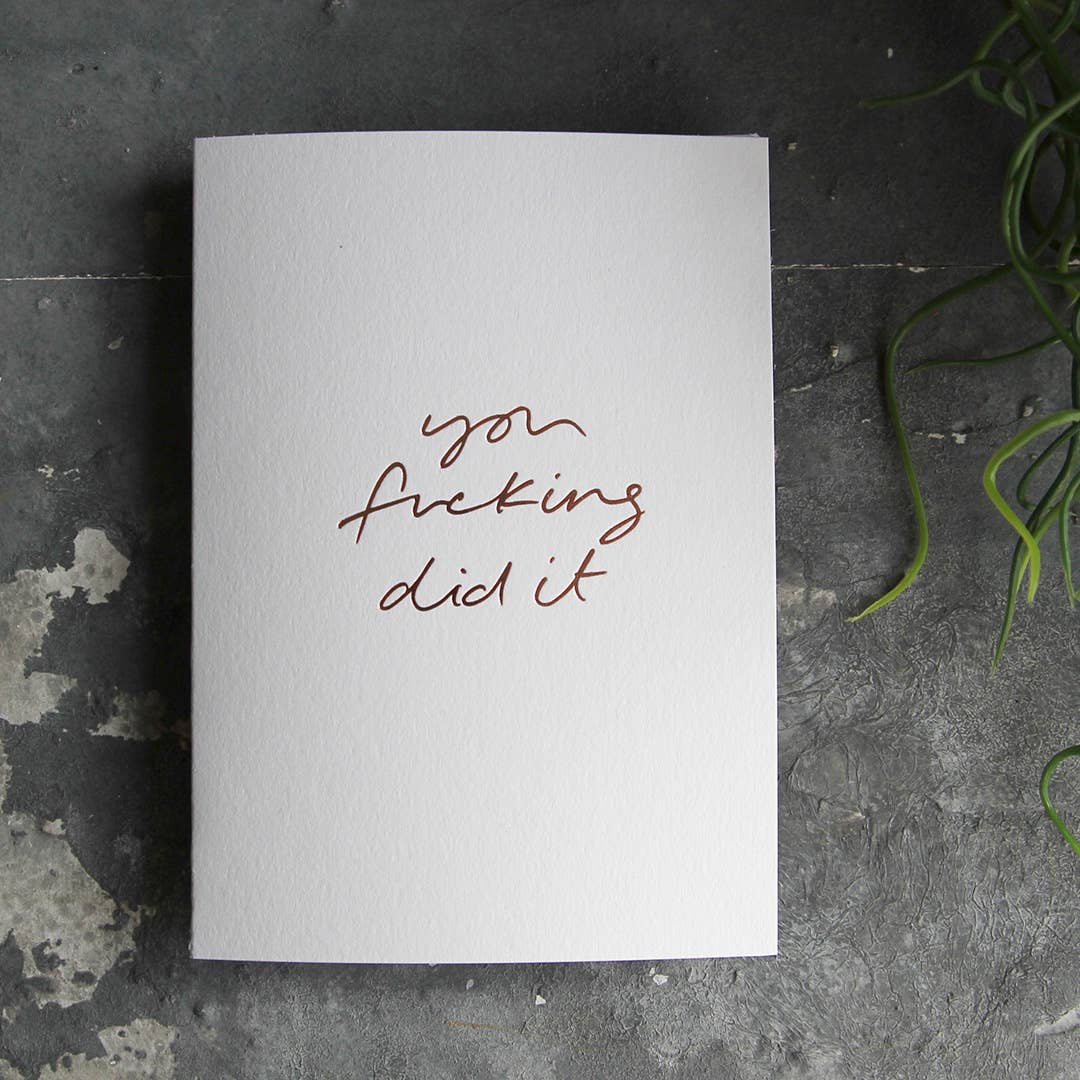 you
fucking
did it